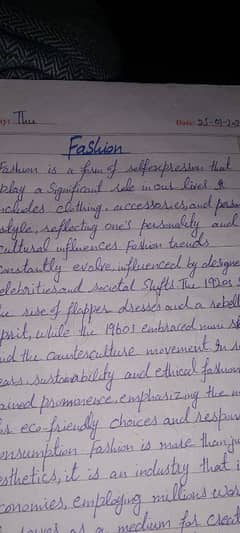 Thu
Date: 25-01-202
Fashion
Fashion is a form of selfexpression that
play a significant role in our lives it
includes clothing, accessories, and pers
style, reflecting one's personality and
cultural influences. Fashion trends
constantly evolve, influenced by designe
celebrities and societal shifts The 1920s
rise of flapper dresses and a rebell
pirit, while the 1960s embraced mini sk
nd the counterculture movement In r
ears, sustainability and ethical fashion
ained prominence, emphasizing the n
eco-friendly choices and respon
onsumption fashion is more than ju
esthetics, it is an industry that i
conomies, employing millions wor
as a medium for creat